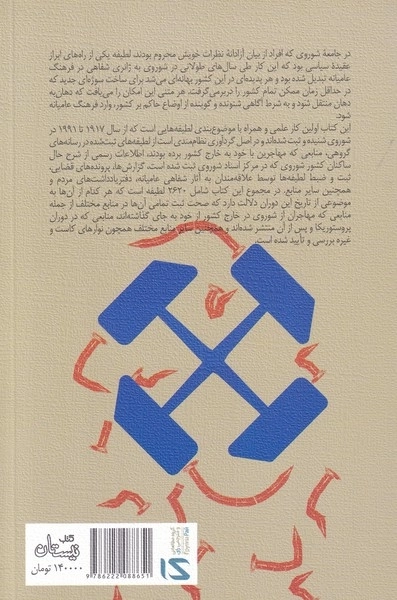 در جامعهٔ شوروی که افراد از بیان آزادانهٔ نظرات خویش محروم بودند، لطیفه یکی از راه‌های ابراز
عقیدهٔ سیاسی بود که این کار طی سال‌های طولانی در شوروی به ژانری شفاهی در فرهنگ
عامیانه تبدیل شده بود و هر پدیده‌ای در این کشور بهانه‌ای می‌شد برای ساخت سوژه‌ای جدید که
در حداقل زمان ممکن تمام کشور را دربرمی‌گرفت. هر متنی این امکان را می‌یافت که دهان‌به
دهان منتقل شود و به شرط آگاهی شنونده و گوینده از اوضاع حاکم بر کشور، وارد فرهنگ عامیانه
شود.
این کتاب اولین کار علمی و همراه با موضوع‌بندی لطیفه‌هایی است که از سال ۱۹۱۷ تا ۱۹۹۱ در
شوروی شنیده و ثبت شده‌اند و در اصل گردآوری نظام‌مندی است از لطیفه‌های ثبت‌شده در رسانه‌های
گروهی، منابعی که مهاجرین با خود به خارج کشور برده بودند، اطلاعات رسمی از شرح حال
ساکنان کشور شوروی که در مرکز اسناد شوروی ثبت شده است، گزارش‌ها، پرونده‌های قضایی،
ثبت و ضبط لطیفه‌ها توسط علاقه‌مندان به آثار شفاهی عامیانه، دفتریادداشت‌های مردم و
همچنین سایر منابع. در مجموع این کتاب شامل ۲۶۲۰ لطیفه است که هر کدام از آن‌ها به
موضوعی از تاریخ این دوران دلالت دارد که صحت ثبت تمامی آن‌ها در منابع مختلف از جمله
منابعی که مهاجران از شوروی در خارج کشور از خود به جای گذاشته‌اند، منابعی که در دوران
پروستوریکا و پس از آن منتشر شده‌اند و همچنین سایر منابع مختلف همچون نوارهای کاست و
غیره بررسی و تأیید شده است.
کتاب
نیستان
۱۴۰۰۰۰ تومان
9786222088651